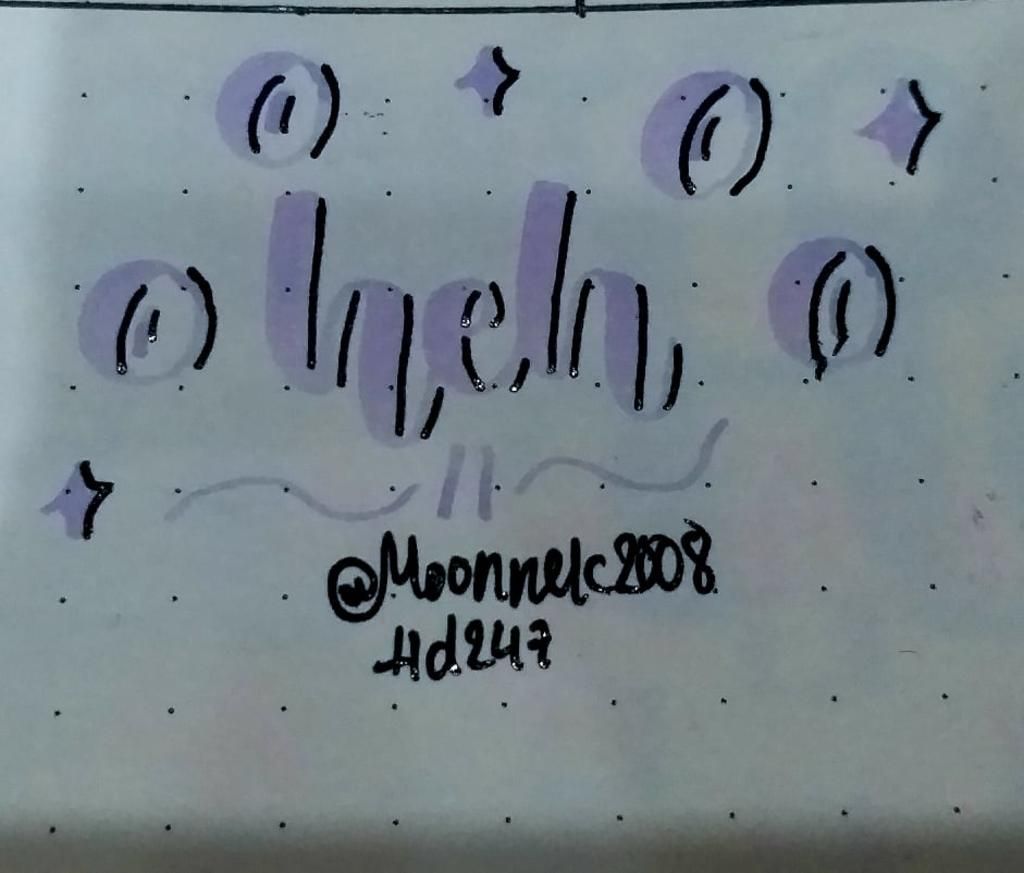 heh
@Moonnelc2008
Hd247